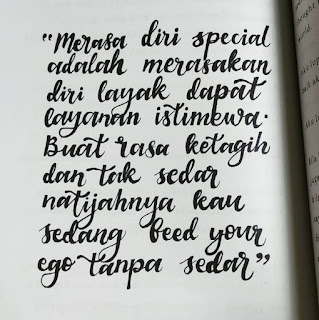 "Merasa diri special
adalah merasakan
diri layak dapat
layanan istimewa.
Buat rasa ketagih
dan tak sedar
natijahnya kau
sedang feed your
ego tanpa sedar"